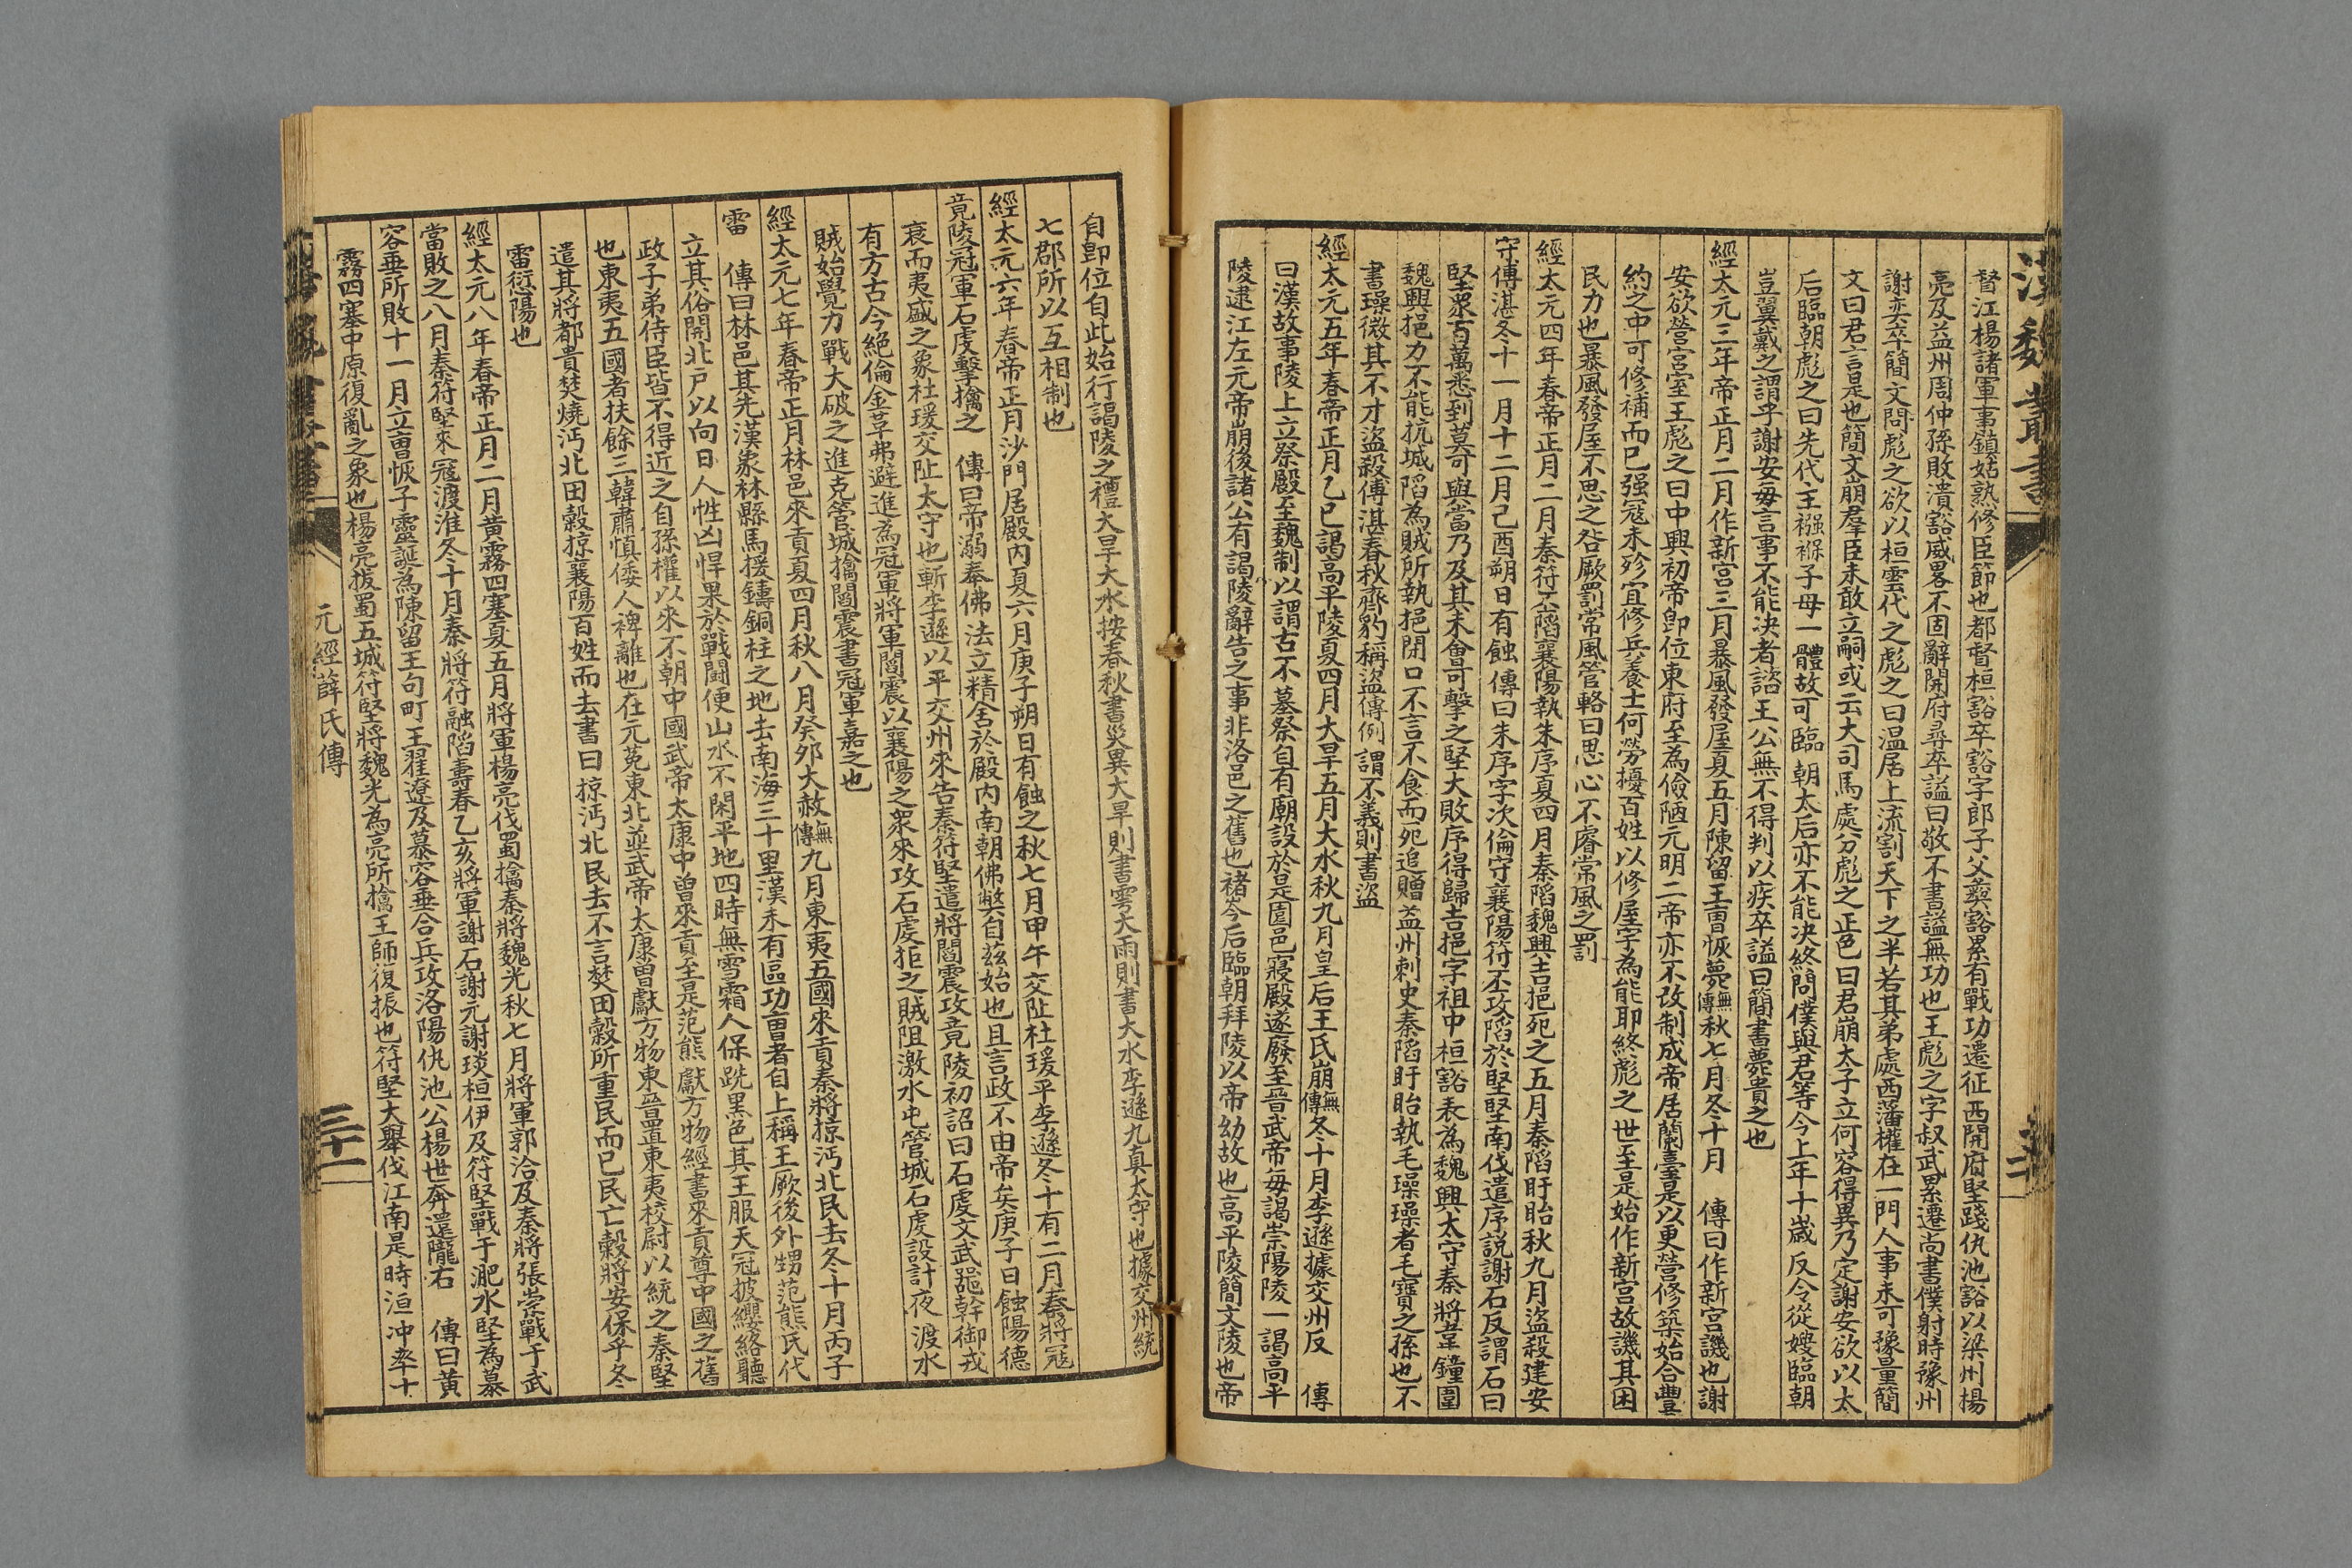 漢魏叢書
督江楊諸軍事鎮姑熟修臣節也都督桓豁卒豁字郎子父彝豁累有戰功遷征西開府堅踐仇池豁以梁州楊
亮及益州周仲孫敗潰豁威畧不固辭開府尋卒謚曰敬不書謚無功也王彪之字叔武累遷尚書僕射時豫州
謝奕卒簡文問彪之欲以桓雲代之彪之曰温居上流割天下之半若其弟處西藩權在一門人事未可豫量簡
文曰君言是也簡文崩羣臣未敢立嗣或云大司馬處分彪之正色曰君崩太子立何容得異乃定謝安欲以太
后臨朝彪之曰先代王襁褓子母一體故可臨朝太后亦不能决終問僕與君等今上年十歲反令從嫂臨朝
豈翼戴之謂乎謝安毎言事不能决者諮王公無不得判以疾卒謚曰簡書薨貴之也
經太元三年帝正月二月作新宫三月暴風發屋夏五月陳留王曺恢薨無傳秋七月冬十月 傳曰作新宫譏也謝
安欲營宫室王彪之曰中興初帝卽位東府至為儉陋元明二帝亦不改制成帝居蘭臺是以更營修築始合豐
約之中可修補而已强冦未殄宜修兵養士何勞擾百姓以修屋宇為能耶終彪之世至是始作新宫故譏其困
民力也暴風發屋不思之咎厥罰常風管輅曰思心不睿常風之罰
經太元四年春帝正月二月秦符丕䧟襄陽執朱序夏四月秦䧟魏興吉挹死之五月秦䧟盱眙秋九月盜殺建安
守傅湛冬十一月十二月己酉朔日有蝕 傳曰朱序字次倫守襄陽符丕攻䧟於堅堅南伐遣序說謝石反謂石曰
堅衆百萬悉到莫可與當乃及其未會可擊之堅大敗序得歸吉挹字祖中桓豁表為魏興太守秦將韋鐘圍
魏興挹力不能抗城䧟為賊所執挹閉口不言不食而死追贈益州刺史秦䧟盱眙執毛璪璪者毛寶之孫也不
書璪微其不才盜殺傅湛春秋齊豹稱盜傳例謂不義則書盜
經太元五年春帝正月乙巳謁高平陵夏四月大旱五月大水秋九月皇后王氏崩無傳冬十月李遜據交州反 傳
曰漢故事陵上立祭殿至魏制以謂古不墓祭自有廟設於是園邑寢殿遂廢至晉武帝毎謁崇陽陵一謁高平
陵逮江左元帝崩後諸公有謁陵辭告之事非洛邑之舊也褚岑后臨朝拜陵以帝幼故也高平陵簡文陵也帝
自卽位自此始行謁陵之禮大旱大水按春秋書災異大旱則書雩大雨則書大水李遜九真太守也據交州統
七郡所以互相制也
經太元六年春帝正月沙門居殿内夏六月庚子朔日有蝕之秋七月甲午交阯杜瑗平李遜冬十有二月秦將冦
竟陵冠軍石虔擊擒之 傳曰帝溺奉佛法立精舍於殿内南朝佛弊自兹始也且言政不由帝矣庚子日蝕陽德
衰而夷盛之象杜瑗交阯太守也斬李遜以平交州來告秦符堅遣將閻震攻竟陵初詔曰石虔文武噐幹御戎
有方古今絶倫金革弗避進為冠軍將軍閻震以襄陽之衆來攻石虔拒之賊阻激水屯管城石虔設計夜渡水
賊始覺力戰大破之進克管城擒閻震書冠軍嘉之也
經太元七年春帝正月林邑來貢夏四月秋八月癸夘大赦無傳九月東夷五國來貢秦將掠沔北民去冬十月丙子
雷 傳曰林邑其先漢象林縣馬援鑄銅柱之地去南海三十里漢末有區功曺者自上稱王厥後外甥范熊氏代
立其俗開北戶以向日人性凶悍果於戰鬬便山水不閑平地四時無雪霜人倮跣黑色其王服天冠披纓絡聽
政子弟侍臣皆不得近之自孫權以來不朝中國武帝太康中曽來貢至是范熊獻方物經書來貢尊中國之舊
也東夷五國者扶餘三韓肅慎倭人裨離也在元菟東北並武帝太康曽獻方物東晉置東夷校尉以統之秦堅
遣其將都貴焚燒沔北田穀掠襄陽百姓而去書曰掠沔北民去不言焚田穀所重民而已民亡穀將安保乎冬
雷愆陽也
經太元八年春帝正月二月黄霧四塞夏五月將軍楊亮伐蜀擒秦將魏光秋七月將軍郭洽及秦將張崇戰于武
當敗之八月秦符堅來冦渡淮冬十月秦將符融䧟壽春乙亥將軍謝石謝元謝琰桓伊及符堅戰于淝水堅為慕
容垂所敗十一月立曺恢子靈誕為陳留王句町王翟遼及慕容垂合兵攻洛陽仇池公楊世奔還隴右 傳曰黄
霧四塞中原復亂之象也楊亮拔蜀五城符堅將魏光為亮所擒王師復振也符堅大舉伐江南是時洹冲率十
元經薛氏傳
三十一